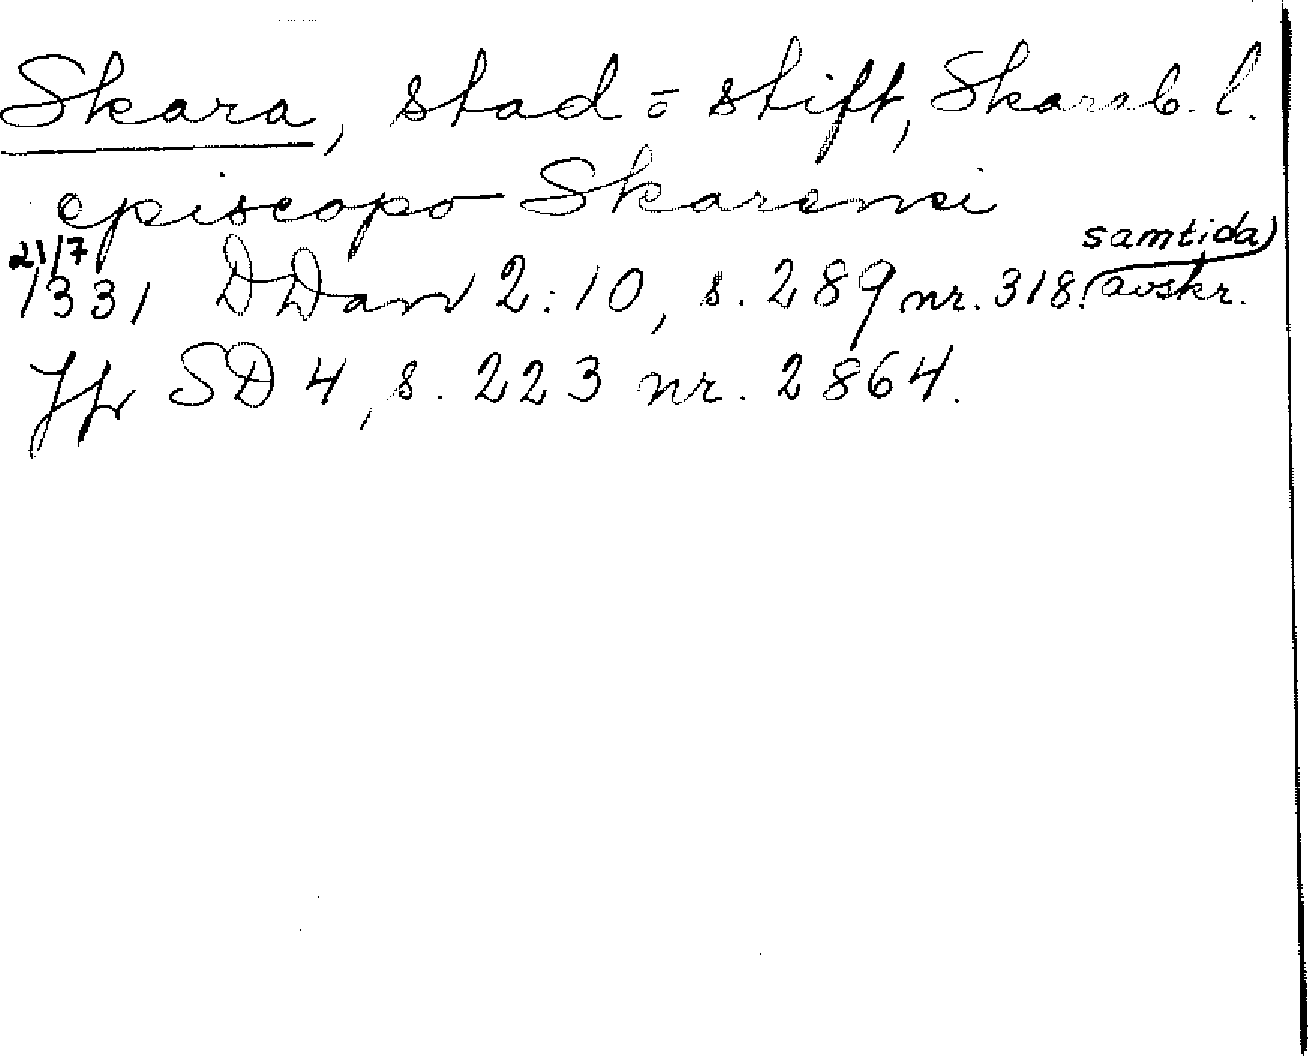 Skara, stad o stift, Skarab. l.
episcopo Skarensi
21/7 1331 DDan 2:10, s. 289 nr. 318. (samtida avskr.
Jfr SD 4, s. 223 nr. 2864.